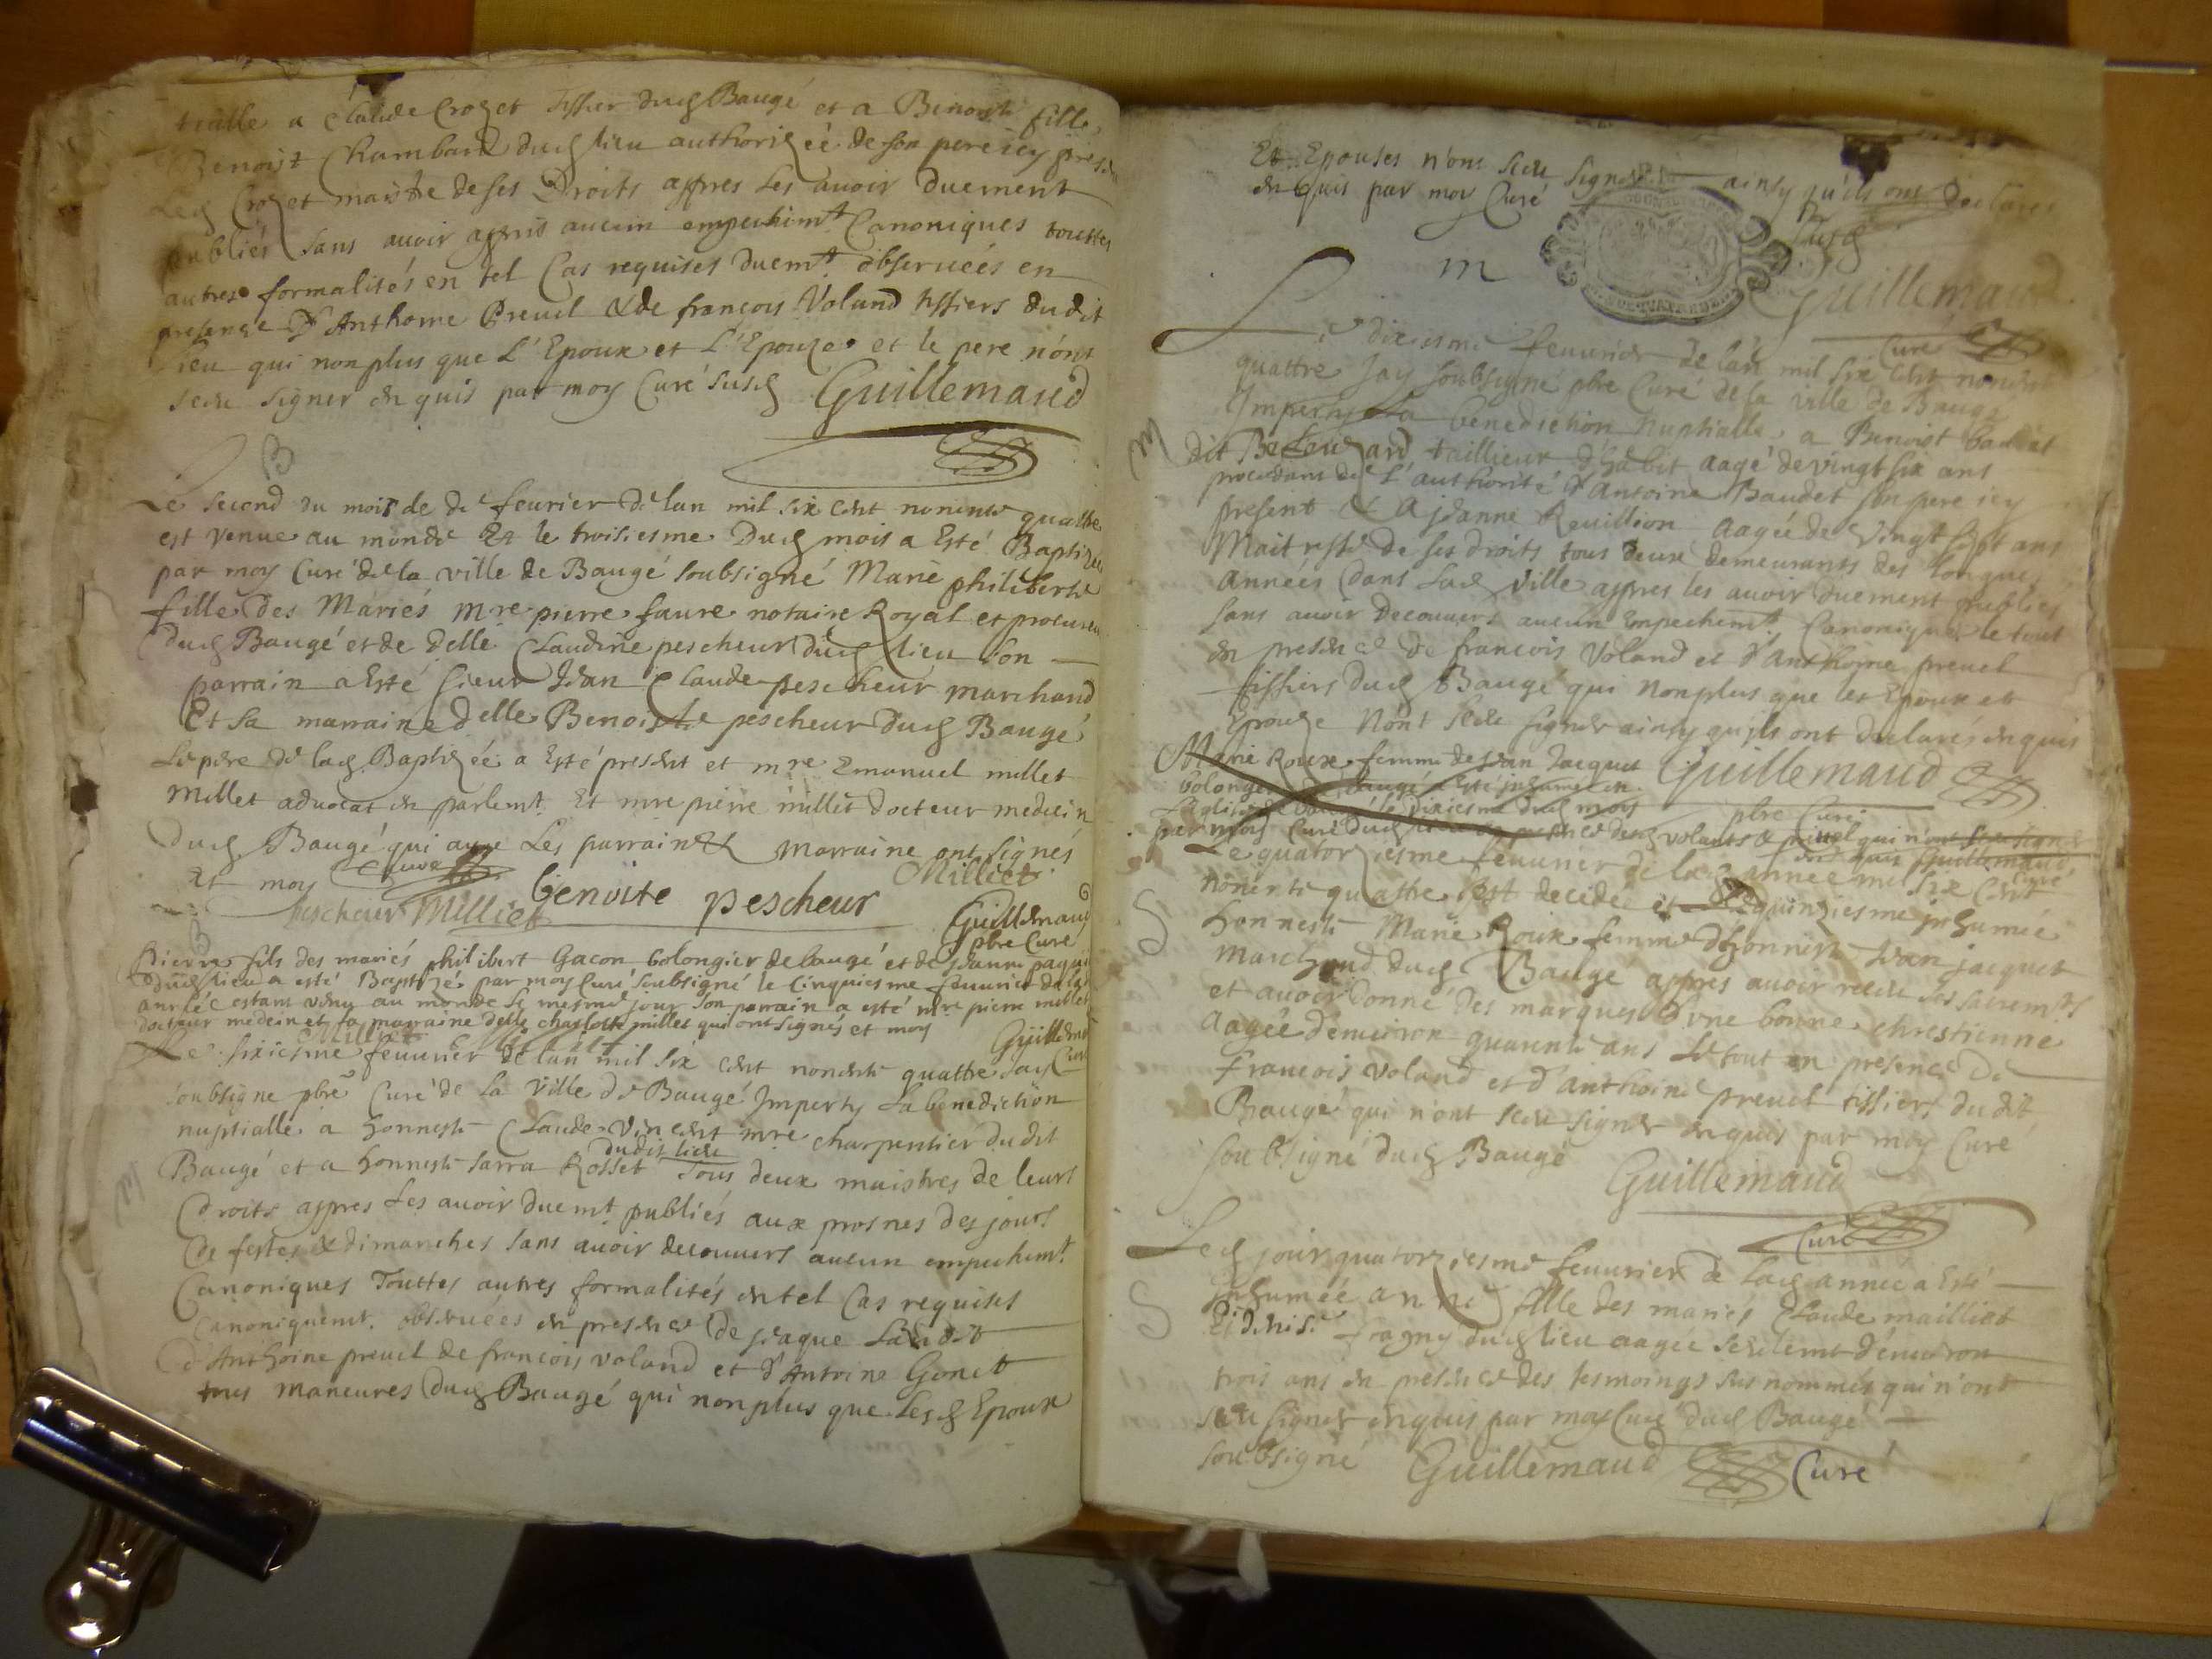 tialle a Claude Crozet tissier dud Baugé et a Benoiste fille
Benoist Chambard dud lieu authorizéé de son pere icy present
Led Crozet maistre de ses Droits appres Les avoir duement
publiés sans avoir appris aucun empechemt Canoniques touttes
autres formalités en tel Cas requises duemt observeés en
presence D'Anthoine Preuel & de francois Voland tissiers du dit
lieu qui non plus que L'Epoux et L'Epouze et le pere n'ont
sceu signer enquis par moy Curé susd Guillemaud
B
Le second du mois de de feurier de lan mil six cent nonente quattre
est venue au monde Et le troisiesme Dud mois a Esté Baptizée
par moy Curé de la ville de Baugé soubsigné Marie philiberte
fille des Mariés mre pierre faure notaire Royal et procureur
dud Baugé et de delle Claudine pescheur dud lieu son
parrain a Esté sieur Jean Claude pescheur marchand
Et sa marraine delle Benoiste pescheur dud Baugé
Le pere de lad Baptizéé a Esté present et mre Emanuel millet
Millet advocat en parlemt. Et mre pierre millet docteur medecin
dud Baugé qui avec Les parrain & marraine ont signés
Et moy Curé
Milliet
pescheur Milliet benoite pescheur Guillemaud
pbre Curé
B
Pierre fils des mariés philibert Gacon bolongier de baugé et de Jeanne
dud lieu a esté Baptizé par moy Curé soubsigné le Cinquiesme feuurier de lad
anneé estant venu au monde le mesme jour son parrain a esté mre pierre millet
docteur medecin et sa marraine delle charlotte millet qui ont signés et moy
Milliet Guillemaud
Curé
Le sixiesme feuurier de lan mil six cent nonente quattre Jay
soubsigne pbre Curé de la Ville de Baugé Imperty La benediction
nuptialle a honneste Claude Vincent mre charpentier du dit
dudit lieu
Baugé et a honneste sarra Rosset Tous deux maistres de leurs
Droits appres Les avoir duemt publiés aux prosnes des jours
de festes & dimanches sans avoir decouuers aucun empechemt
Canoniques Touttes autres formalités en tel Cas requises
Canoniquemt. obseruées en presence de Jaque
d'Anthoine preuel de francois voland et d'Antoine Gonet
tous maneures dud Baugé qui non plus que Lesd Epoux
Et Epouses n'ont sceu signer ainsy qu'ils ont declarés
enquis par moy Curé susd
m
Guillemaud
Curé
Le dixiesme feuurier de lan mil six cent nonente
quattre Jay soubsigné pbre Curé de la ville de Baugé
Imperty La benediction Nuptialle a Benoist baudet
M
dit taillieur d'habit aagé de vingt six ans
procedant de L'authorité d'Antoine Baudet son pere icy
present & a Jeanne Reuillion aagée de vingt sept ans
Maitresse de ses droits tous deux demeurants des longues
années dans Lad ville appres les avoir duement publiés
sans avoir decouuers aucun Empechemt Canoniques le tout
en presence de francois Voland et d'Anthoine preuel
tissiers dud Baugé qui non plus que les Epoux et
Epouze n'ont sceu signer ainsy qu'ils ont declarés enquis
Guillemaud
pbre Curé
Marie Roux femme de Jean Jacquet
bolongé baugé a Esté inhumée en
Leglise de baugé le dixiesme dud mois
par moy Curé dud lieu en presence desd volands & preuel qui n'ont sceu signer
enquis Guillemaud
Curé
Le quatorziesme feuurier de lad année mil six cent
nonente quattre Est decedé et quinziesme inhumée
S
honneste Marie Roux femme d'honneste Jean jacquet
marchand dud Baugé appres avoir receu ses sacremts
et avoir donné des marques d'vne bonne chrestienne
aagée d'enuiron quarente ans Le tout en presence de
Francois Voland et d'anthoine preuel tissiers du dit
Baugé qui n'ont sceu signer enquis par moy Curé
soubsigné dud Baugé
Guillemaud
Curé
Led jour quatorziesme feuurier de Lad année a Esté
S
Inhumée anne fille des mariés Claude mailliet
Et denise fragny dud lieu aagée seulemt d'enuiron
trois ans en presence des tesmoings sus nommés qui n'ont
sceu signer enquis par moy Curé dud Baugé
soubsigné Guillemaud Curé